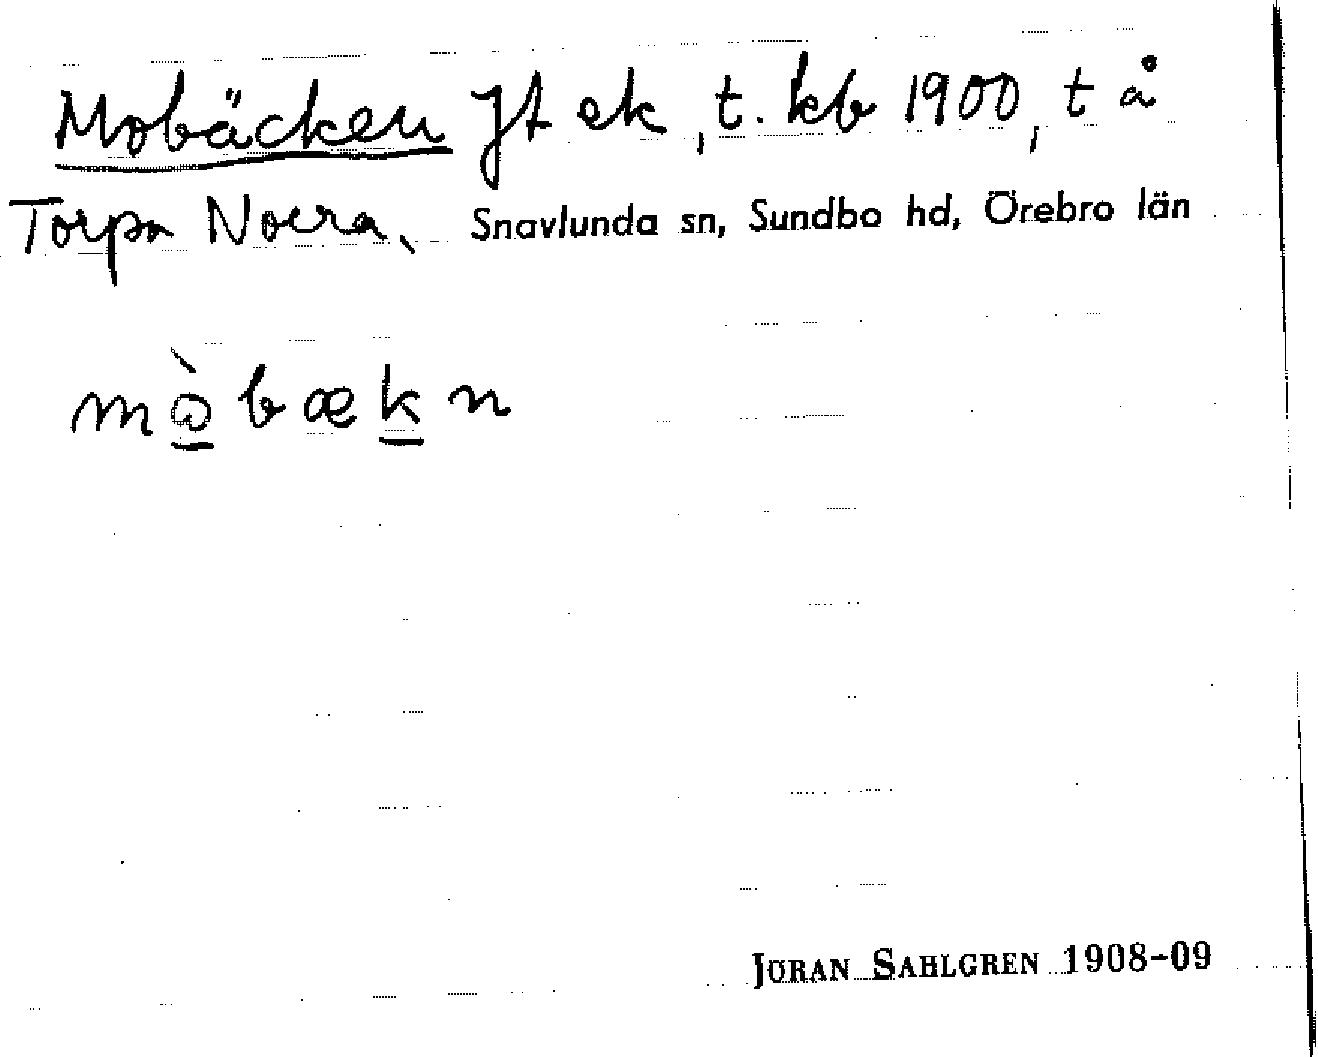 Mobäcken Jt ek, t. kb 1900, t å
Torpa Norra, Snavlunda sn, Sundbo hd, Örebro län
mò̲bæk̲n
JÖRAN SAHLGREN 1908-09